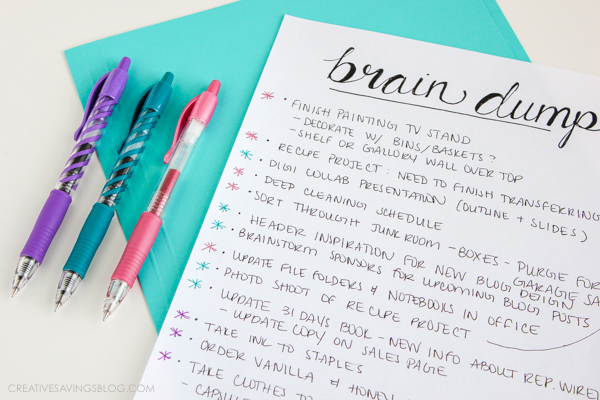 brain dump
* • FINISH PAINTING TV STAND
- DECORATE W/ BINS/BASKETS?
- SHELF OR GALLORY WALL OVER TOP
* • RECIPE PROJECT: NEED TO FINISH TRANSFERRING
* • DIGI COLLAB PRESENTATION (OUTLINE + SLIDES)
* • DEEP CLEANING SCHEDULE
* • SORT THROUGH JUNKROOM - BOXES - PURGE FOR GARAGE SA
* • HEADER INSPIRATION FOR NEW BLOG DESIGN
* • BRAINSTORM SPONSORS FOR UPCOMING BLOG POSTS
* • UPDATE FILE FOLDERS & NOTEBOOKS IN OFFICE
* • PHOTO SHOOT OF RECIPE PROJECT
* • UPDATE 31 DAYS BOOK - NEW INFO ABOUT REP. WIRE
- UPDATE COPY ON SALES PAGE
* • TAKE INK TO STAPLES
* • ORDER VANILLA & HONEY
* • TAKE CLOTHES TO
CREATIVESAVINGSBLOG.COM